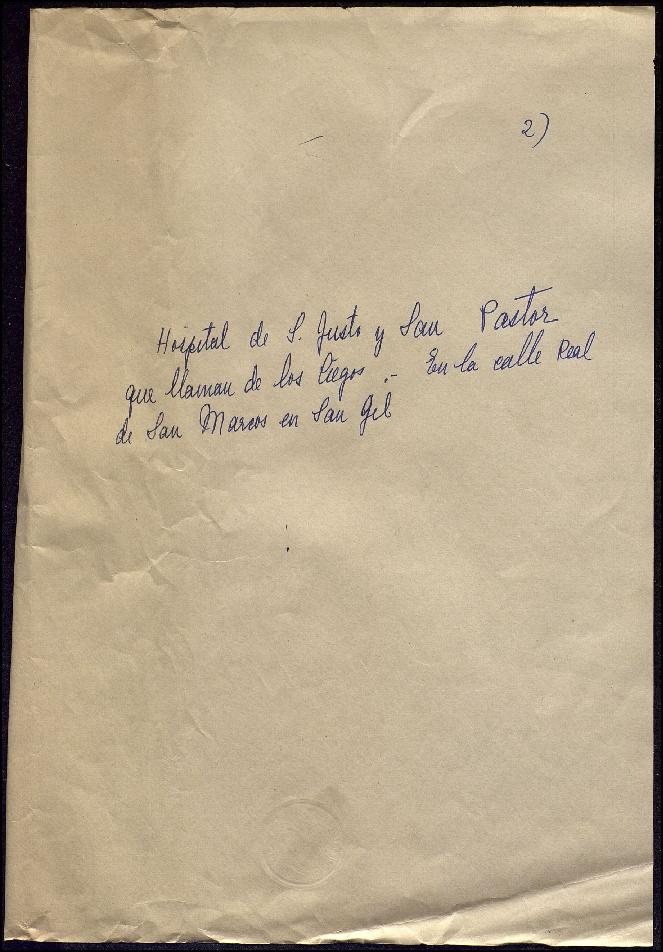 2)
Hospital de S. Justo y San Pastor
que llaman de los Ciegos .- En la calle Real
de San Marcos en San Gil